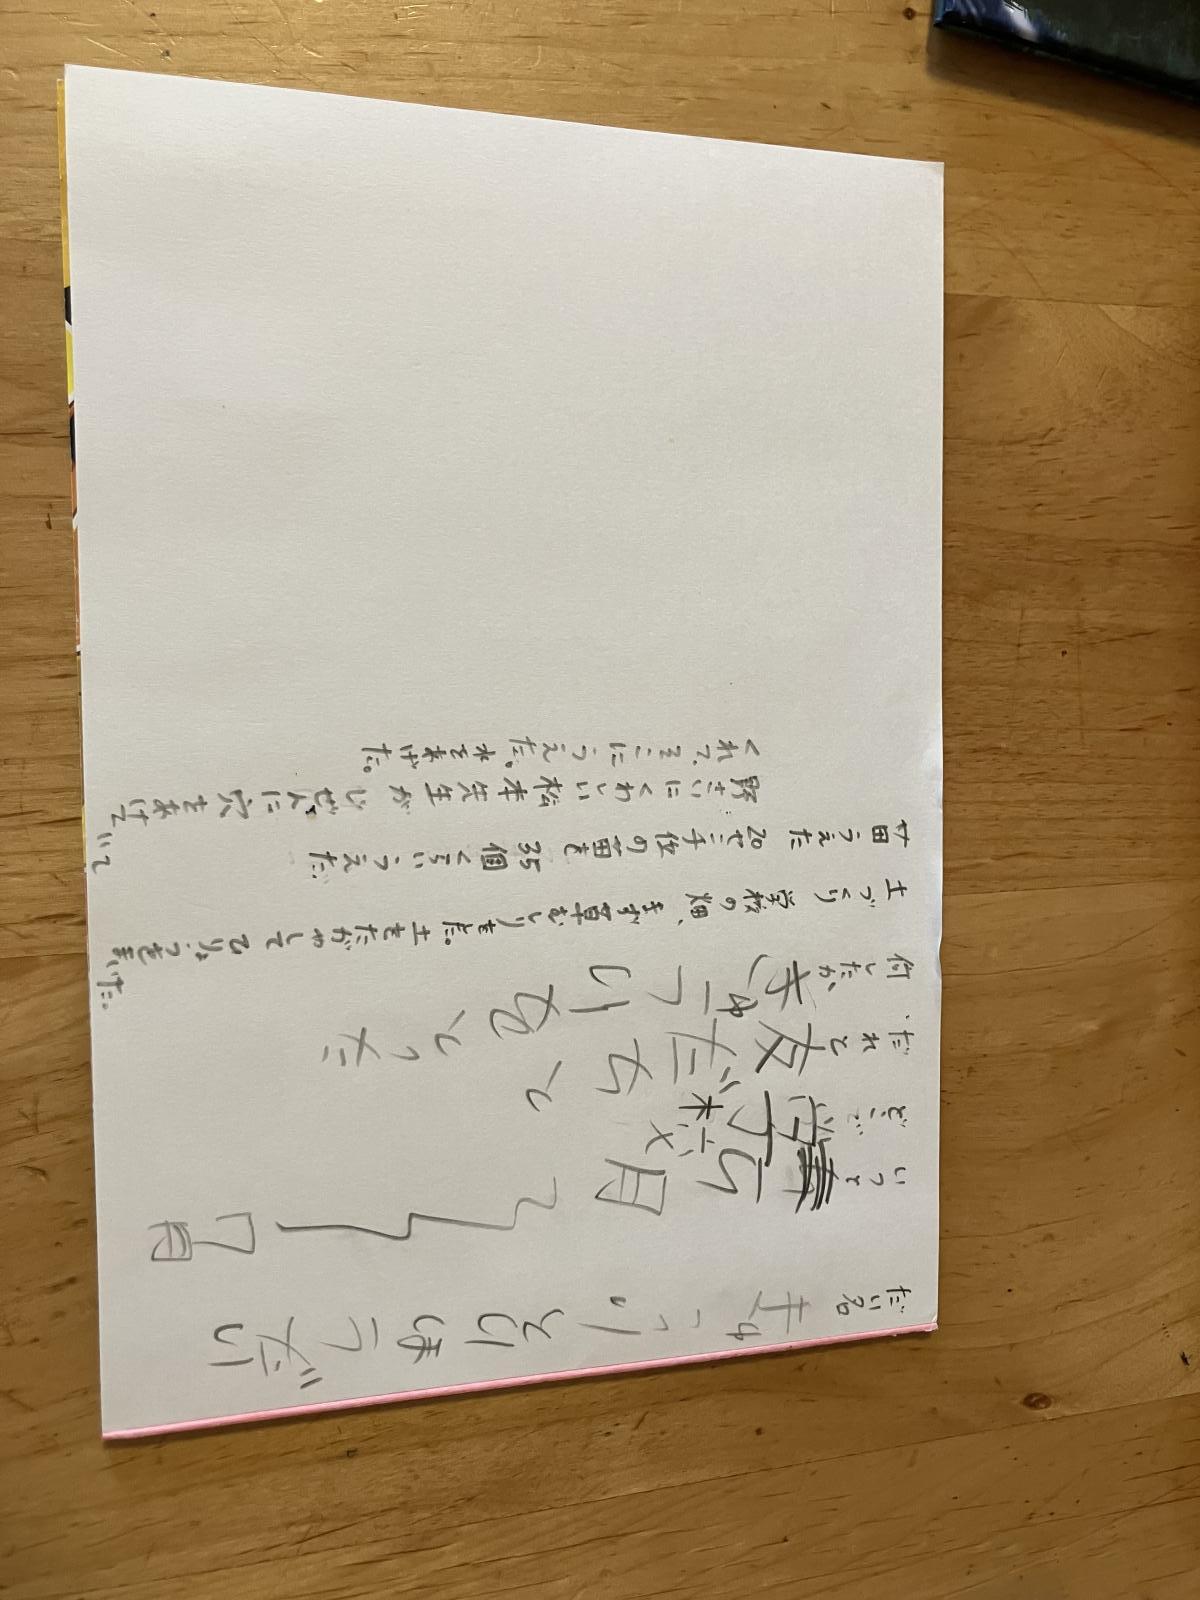 だい名 きゅうりとりほうだい
いつ 5月〜7月
どこで 学校
だれと 友だちと
何したか、きゅうりをとった
土づくり 学校の畑、まず草むしりをした。土をたがやして
苗うえた 20センチ位の苗を35個くらいうえた
野さいにくわしい松本先生がじぜんに穴をあけて
くれて、そこにうえた。水をあげた。